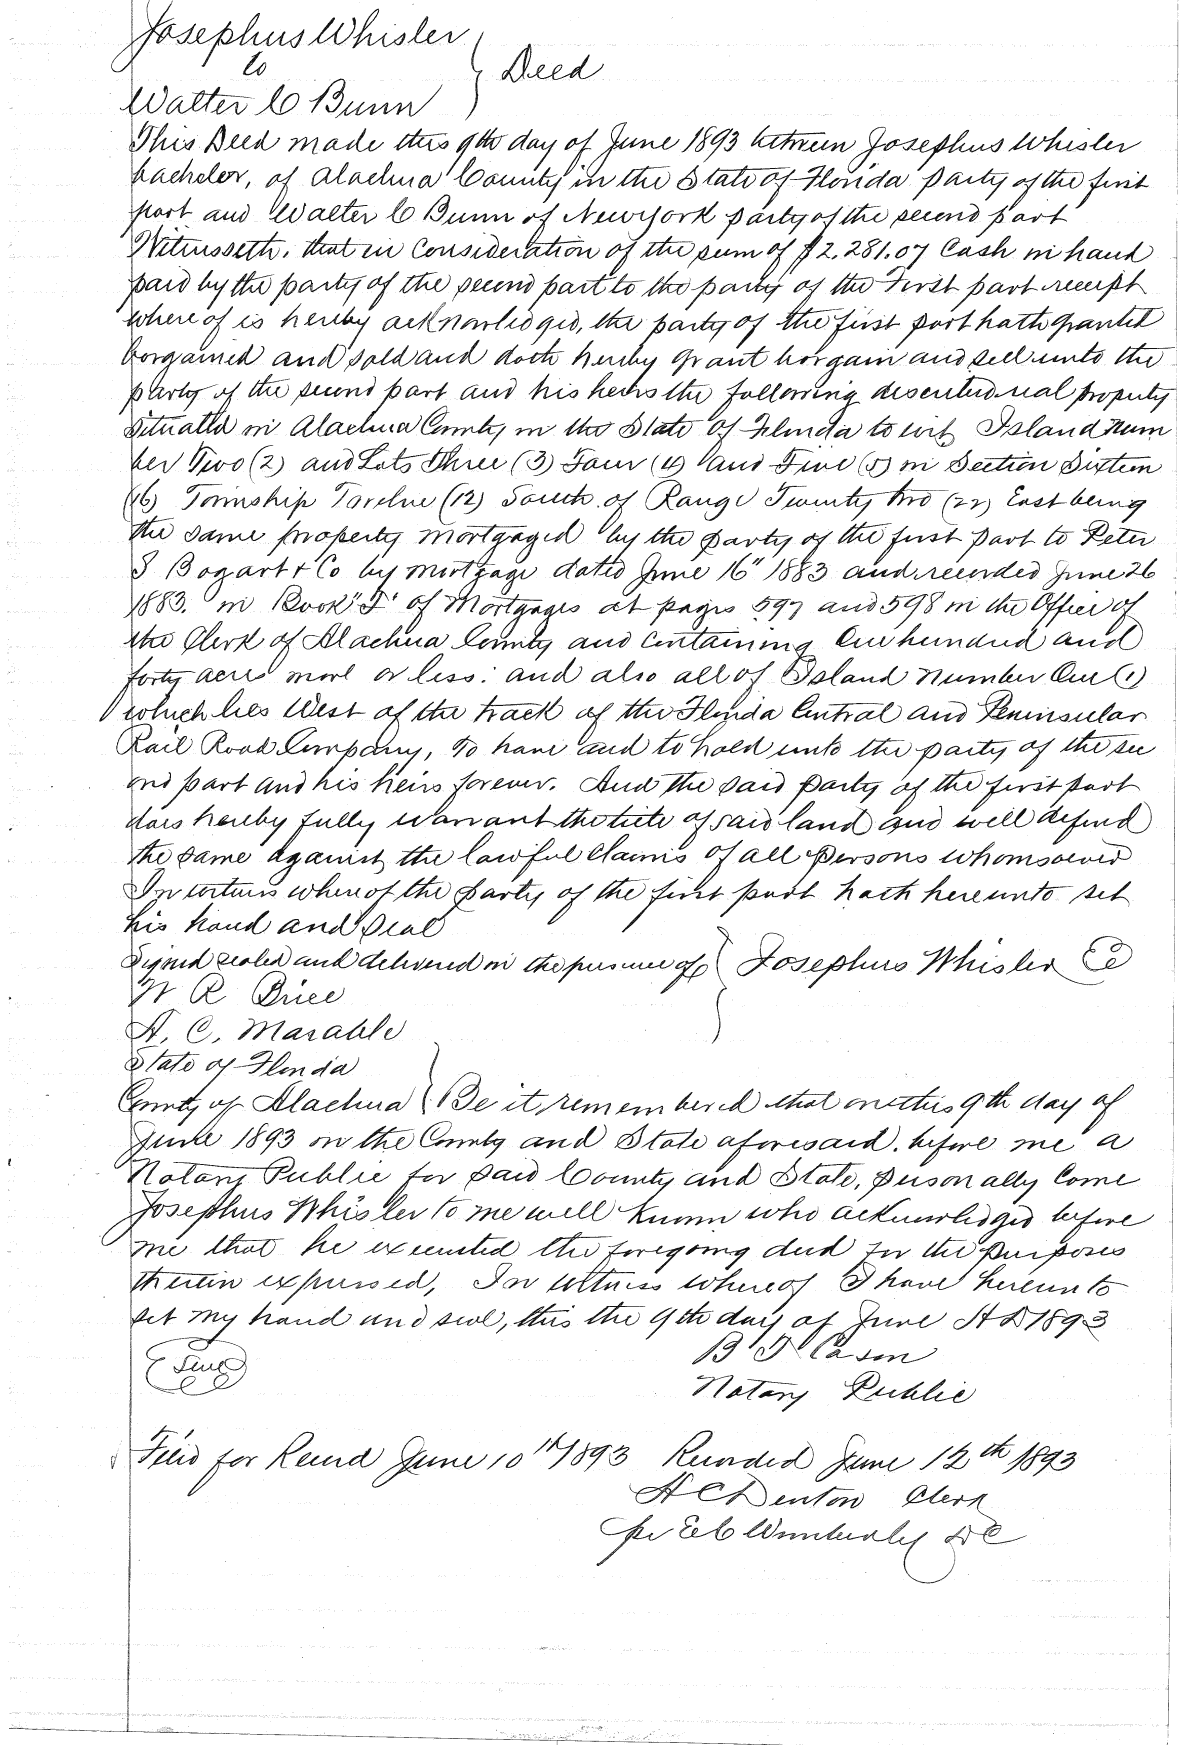 Josephus Whisler
to
Deed
Walter C Bunn
This Deed made this 9th day of June 1893 between Josephus Whisler
bachelor, of Alachua County in the State of Florida party of the first
part and Walter C Bunn of New York party of the second part
Witnesseth, that in consideration of the sum of $2,281.07 Cash in hand
paid by the party of the second part to the party of the First part receipt
where of is hereby acknowledged, the party of the first part hath granted
bargained and sold and doth hereby grant bargain and sell unto the
party of the second part and his heirs the following described real property
situated in Alachua County in the State of Florida to wit Island Num
ber Two (2) and Lots Three (3) Four (4) and Five (5) in Section Sixteen
(16) Township Twelve (12) South of Range Twenty two (22) East being
the same property mortgaged by the party of the first part to Peter
S Bogart & Co by mortgage dated June 16" 1883 and recorded June 26
1883. in Book "F" of Mortgages at pages 597 and 598 in the Office of
the Clerk of Alachua County and containing One hundred and
forty acres more or less: and also all of Island Number One (1)
which lies West of the track of the Florida Central and Peninsular
Rail Road Company, to have and to hold unto the party of the sec
ond part and his heirs forever. And the said party of the first part
does hereby fully warrant the title of said land and will defend
the same against the lawful claims of all persons whomsoever
In witness where of the party of the first part hath hereunto set
his hand and seal
Signed sealed and delivered in the presence of Josephus Whisler
W R Price
A. C. Marable
State of Florida
County of Alachua Be it remembered that on this 9th day of
June 1893 on the County and State aforesaid. before me a
Notary Public for said County and State, personally come
Josephus Whisler to me well known who acknowledged before
me that he executed the foregoing deed for the purposes
therein expressed, In witness whereof I have hereunto
set my hand and seal, this the 9th day of June AD 1893
B F Cason
Seal
Notary Public
Filed for Record June 10th 1893 Recorded June 12th 1893
H C Denton Clerk
per E C Wimberly DC